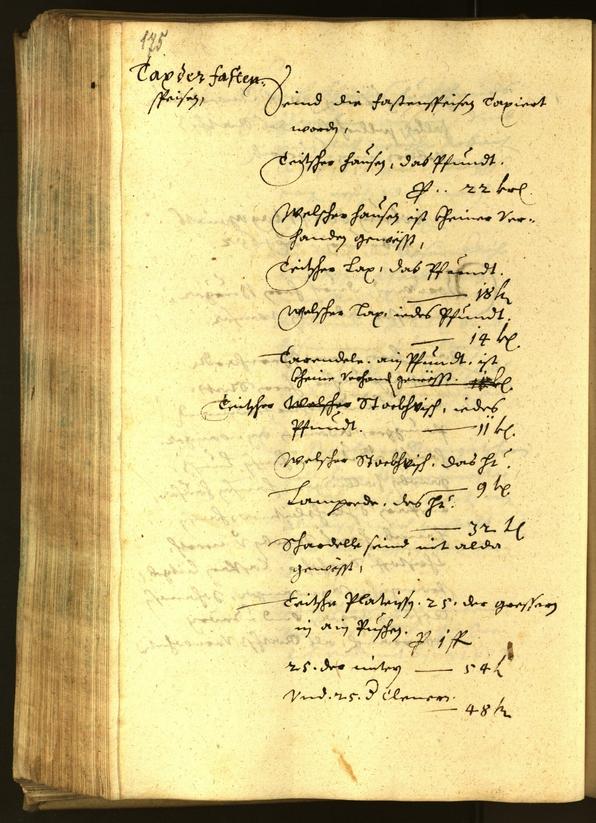 175
Tax der fasten
speisen,
Seind die fastenspeisen Taxiert
worden,
Teitscher hausen, das Pfundt.
P .. 22 krl.
Welscher hausen ist kheiner ver-
handen gewesst,
Teitscher Lax, das Pfundt.
18 k
Welscher Lax, iedes Pfundt.
14 kr.
Tarendele. ain Pfundt. ist
kheine verhand gewesst.
Teitscher Welscher Stockhvisch, iedes
Pfundt. 11 kr.
Welscher Stockhvisch. das
9 kr
Lamprede. des
32
Shardelle seind nit alda
gewesst,
Teitshe Plateissen. 25. der grossern
in ain Pushen. P 1 ff
25. der mitern 54 k
Vnd. 25. d Clenern.
48 kr